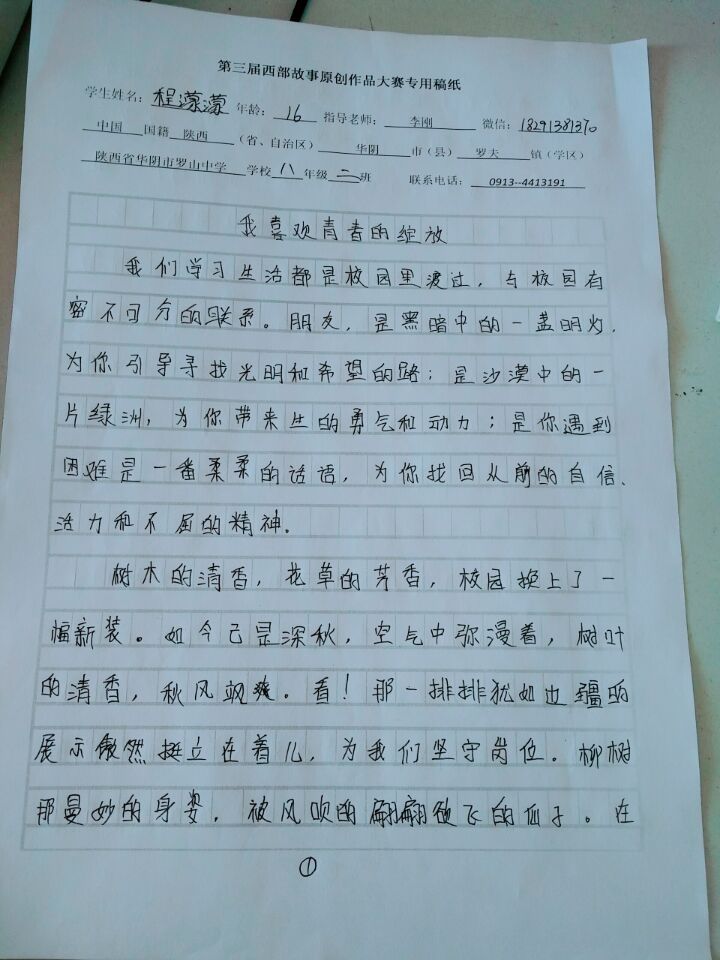 第三届西部故事原创作品大赛专用稿纸
学生姓名：程濛濛 年龄：16 指导老师：李刚 微信：18291381370
中国 国籍 陕西 （省、自治区） 华阴 市（县） 罗夫 镇（学区）
陕西省华阴市罗山中学 学校 八 年级 二 班 联系电话：0913--4413191
我喜欢青春的绽放
我们学习生活都是校园里渡过，与校园有
密不可分的联系。朋友，是黑暗中的一盏明灯，
为你引导寻找光明和希望的路；是沙漠中的一
片绿洲，为你带来生的勇气和动力；是你遇到
困难是一番柔柔的话语，为你找回从前的自信、
活力和不屈的精神。
树木的清香，花草的芳香，校园换上了一
幅新装。如今已是深秋，空气中弥漫着，树叶
的清香，秋风飒爽。看！那一排排犹如边疆的
展示傲然挺立在着儿，为我们坚守岗位。柳树
那曼妙的身姿，被风吹的翩翩欲飞的仙子。在
①